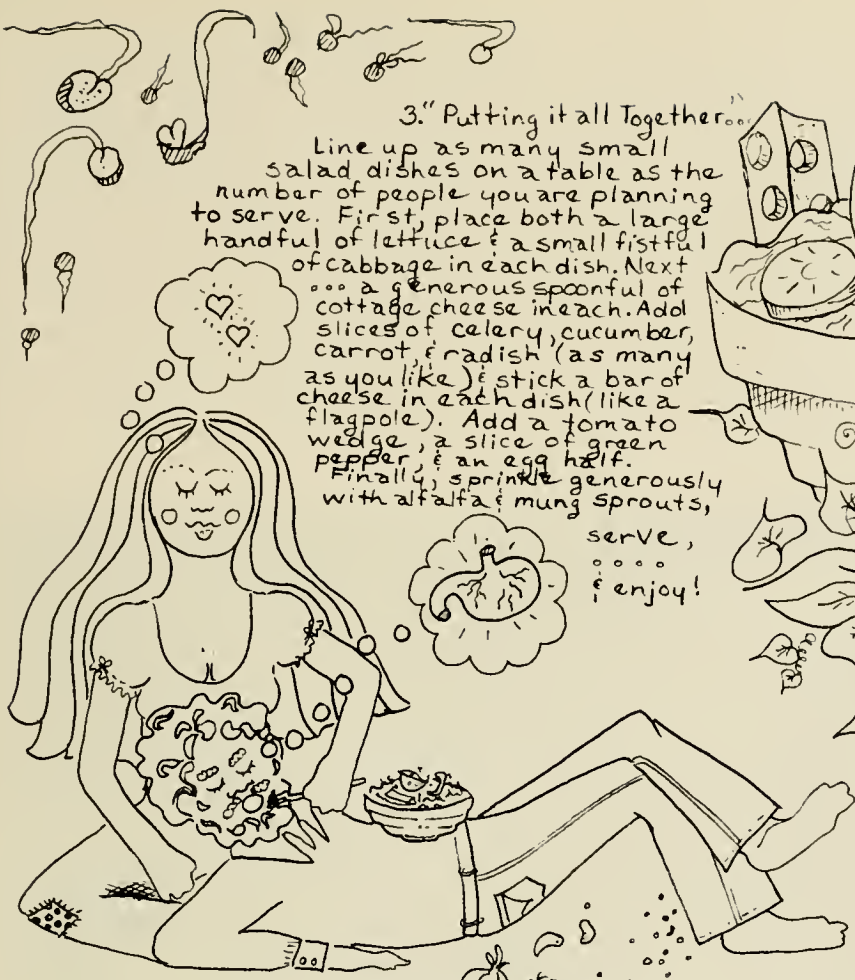 3. "Putting it all Together..."
Line up as many small
salad dishes on a table as the
number of people you are planning
to serve. First, place both a large
handful of lettuce & a small fistful
of cabbage in each dish. Next
... a generous spoonful of
cottage cheese in each. Add
slices of celery, cucumber,
carrot, & radish (as many
as you like) & stick a bar of
cheese in each dish (like a
flagpole). Add a tomato
wedge, a slice of green
pepper, & an egg half.
Finally, sprinkle generously
with alfalfa & mung sprouts,
serve,
....
& enjoy!